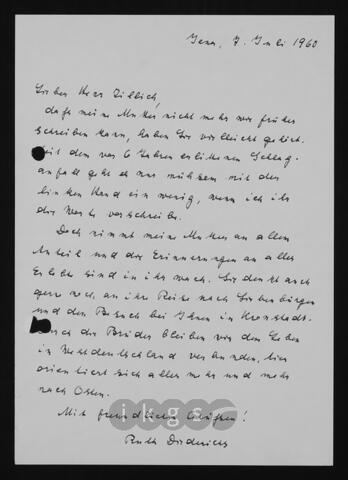 Jena, 7. Juli 1960
Lieber Herr Zillich,
daß meine Mutter nicht mehr wie früher
schreiben kann, haben Sie vielleicht gehört.
Seit dem vor 6 Jahren erlittenen Schlag-
anfall geht es nur mühsam mit der
linken Hand ein wenig, wenn ich ihr
die Worte vorschreibe.
Doch nimmt meine Mutter an allem
Anteil und die Erinnerungen an alles
Erlebte sind in ihr wach. Sie denkt auch
gerne noch an ihre Reise nach Siebenbürgen
und den Besuch bei Ihnen in Kronstadt.
Durch die Brüder bleiben wir dem Leben
in Westdeutschland verbunden, hier
orientiert sich alles mehr und mehr
nach Osten.
Mit freundlichen Grüßen!
Ruth Diederichs
ikgs